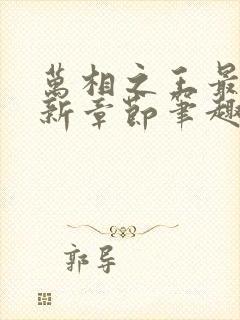 萬相之王最
新章節筆趣
郭导